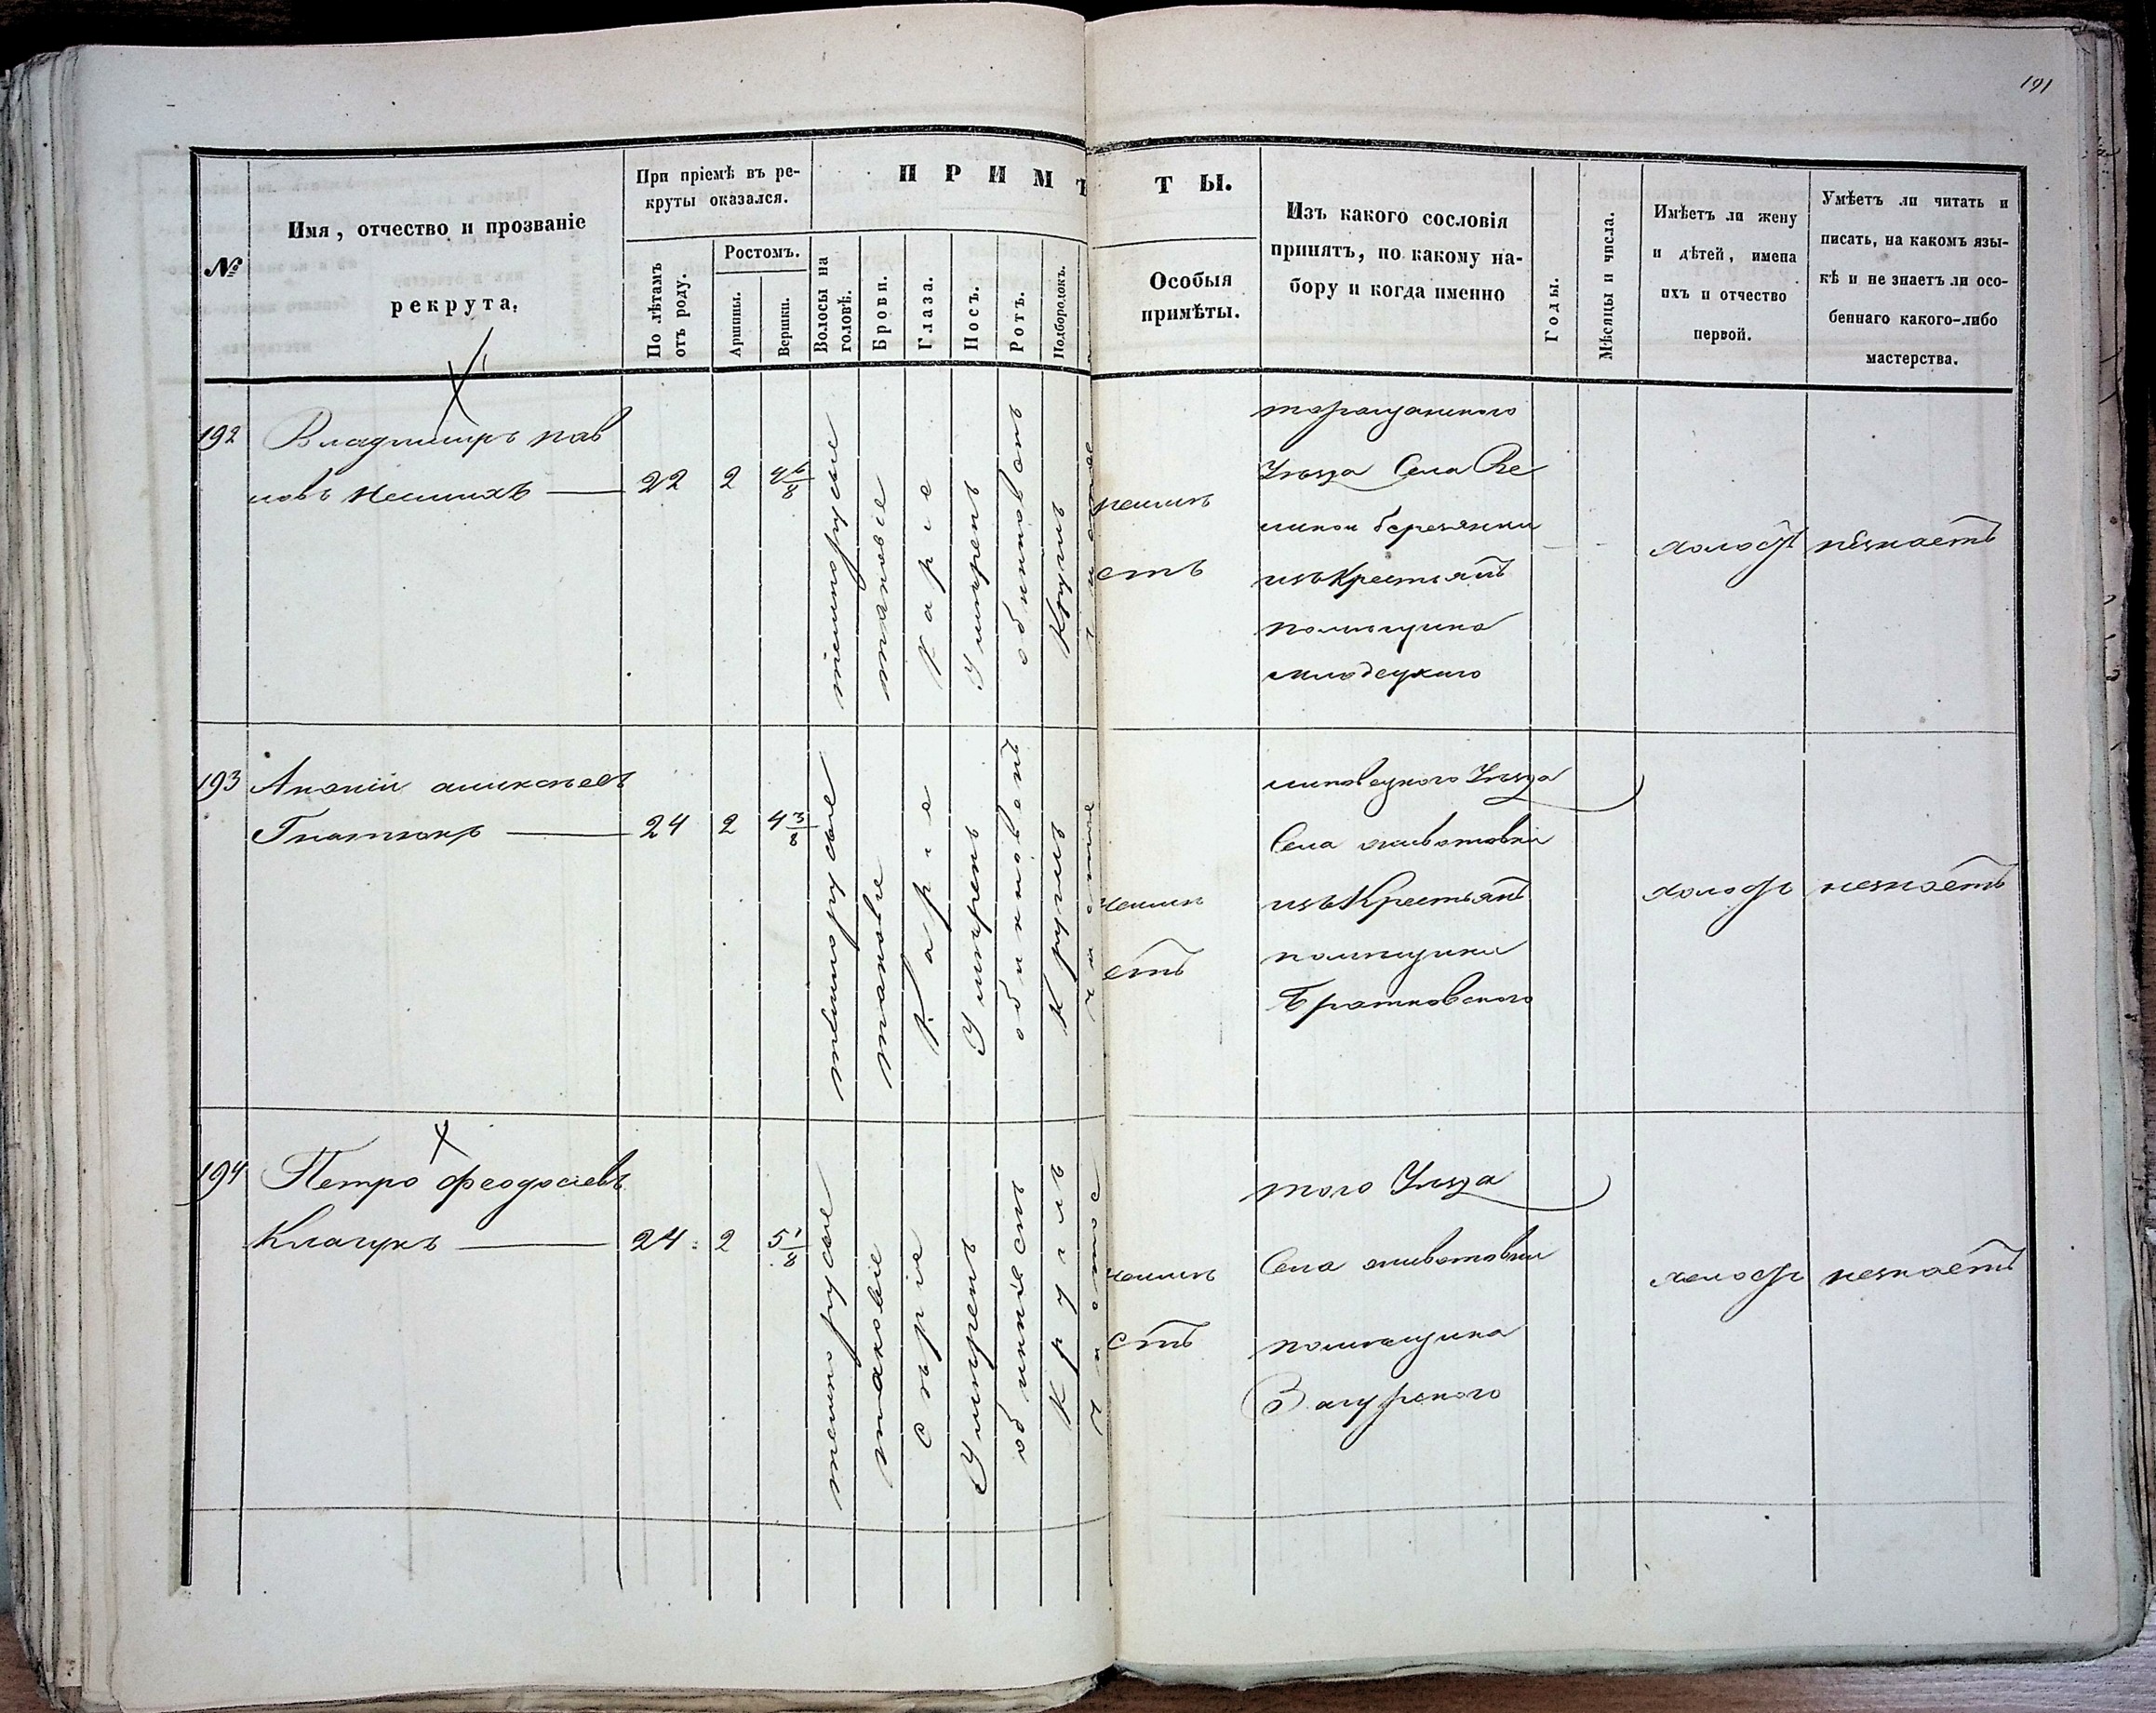 191
№
Имя, отчество и прозваніе
рекрута.
При пріемѣ въ ре-
круты оказался.
По лѣтамъ
отъ роду.
Ростомъ.
Аршины.
Вершки.
ПРИМѢ
ТЫ.
Волосы на
головѣ.
Брови.
Глаза.
Носъ.
Ротъ.
Подбородокъ.
Особыя
примѣты.
Изъ какого сословія
принятъ, по какому на-
бору и когда именно
Годы.
Мѣсяцы и числа.
Имѣетъ ли жену
и дѣтей, имена
ихъ и отчество
первой.
Умѣетъ ли читать и
писать, на какомъ язы-
кѣ и не знаетъ ли осо-
беннаго какого-либо
мастерства.
192
Владимиръ пав
ловъ
22
2
4 6/8
темнорусые
таковіе
Каріе
Умѣренъ
обикновенъ
Круглъ
чистое
таращанского
Уѣзда Села Ве
ликои березянки
изъ Крестьянъ
помѣщика
младецкаго
холостъ
незнаетъ
193
Ананіи аликсѣевъ
Гнатюкъ
24
2
4 3/8
темнорусые
таковіе
Каріе
Умѣренъ
обикновенъ
Круглъ
чистое
липовецкого Уѣзда
Села животовки
изъ Крестьянъ
помѣщика
холостъ
незнаетъ
194
Петро феодосіевъ
24
2
5 1/8
темнорусые
таковіе
Сѣріе
Умѣренъ
Круглъ
чистое
того Уѣзда
Села животовки
помѣщика
Загурского
холостъ
незнаетъ